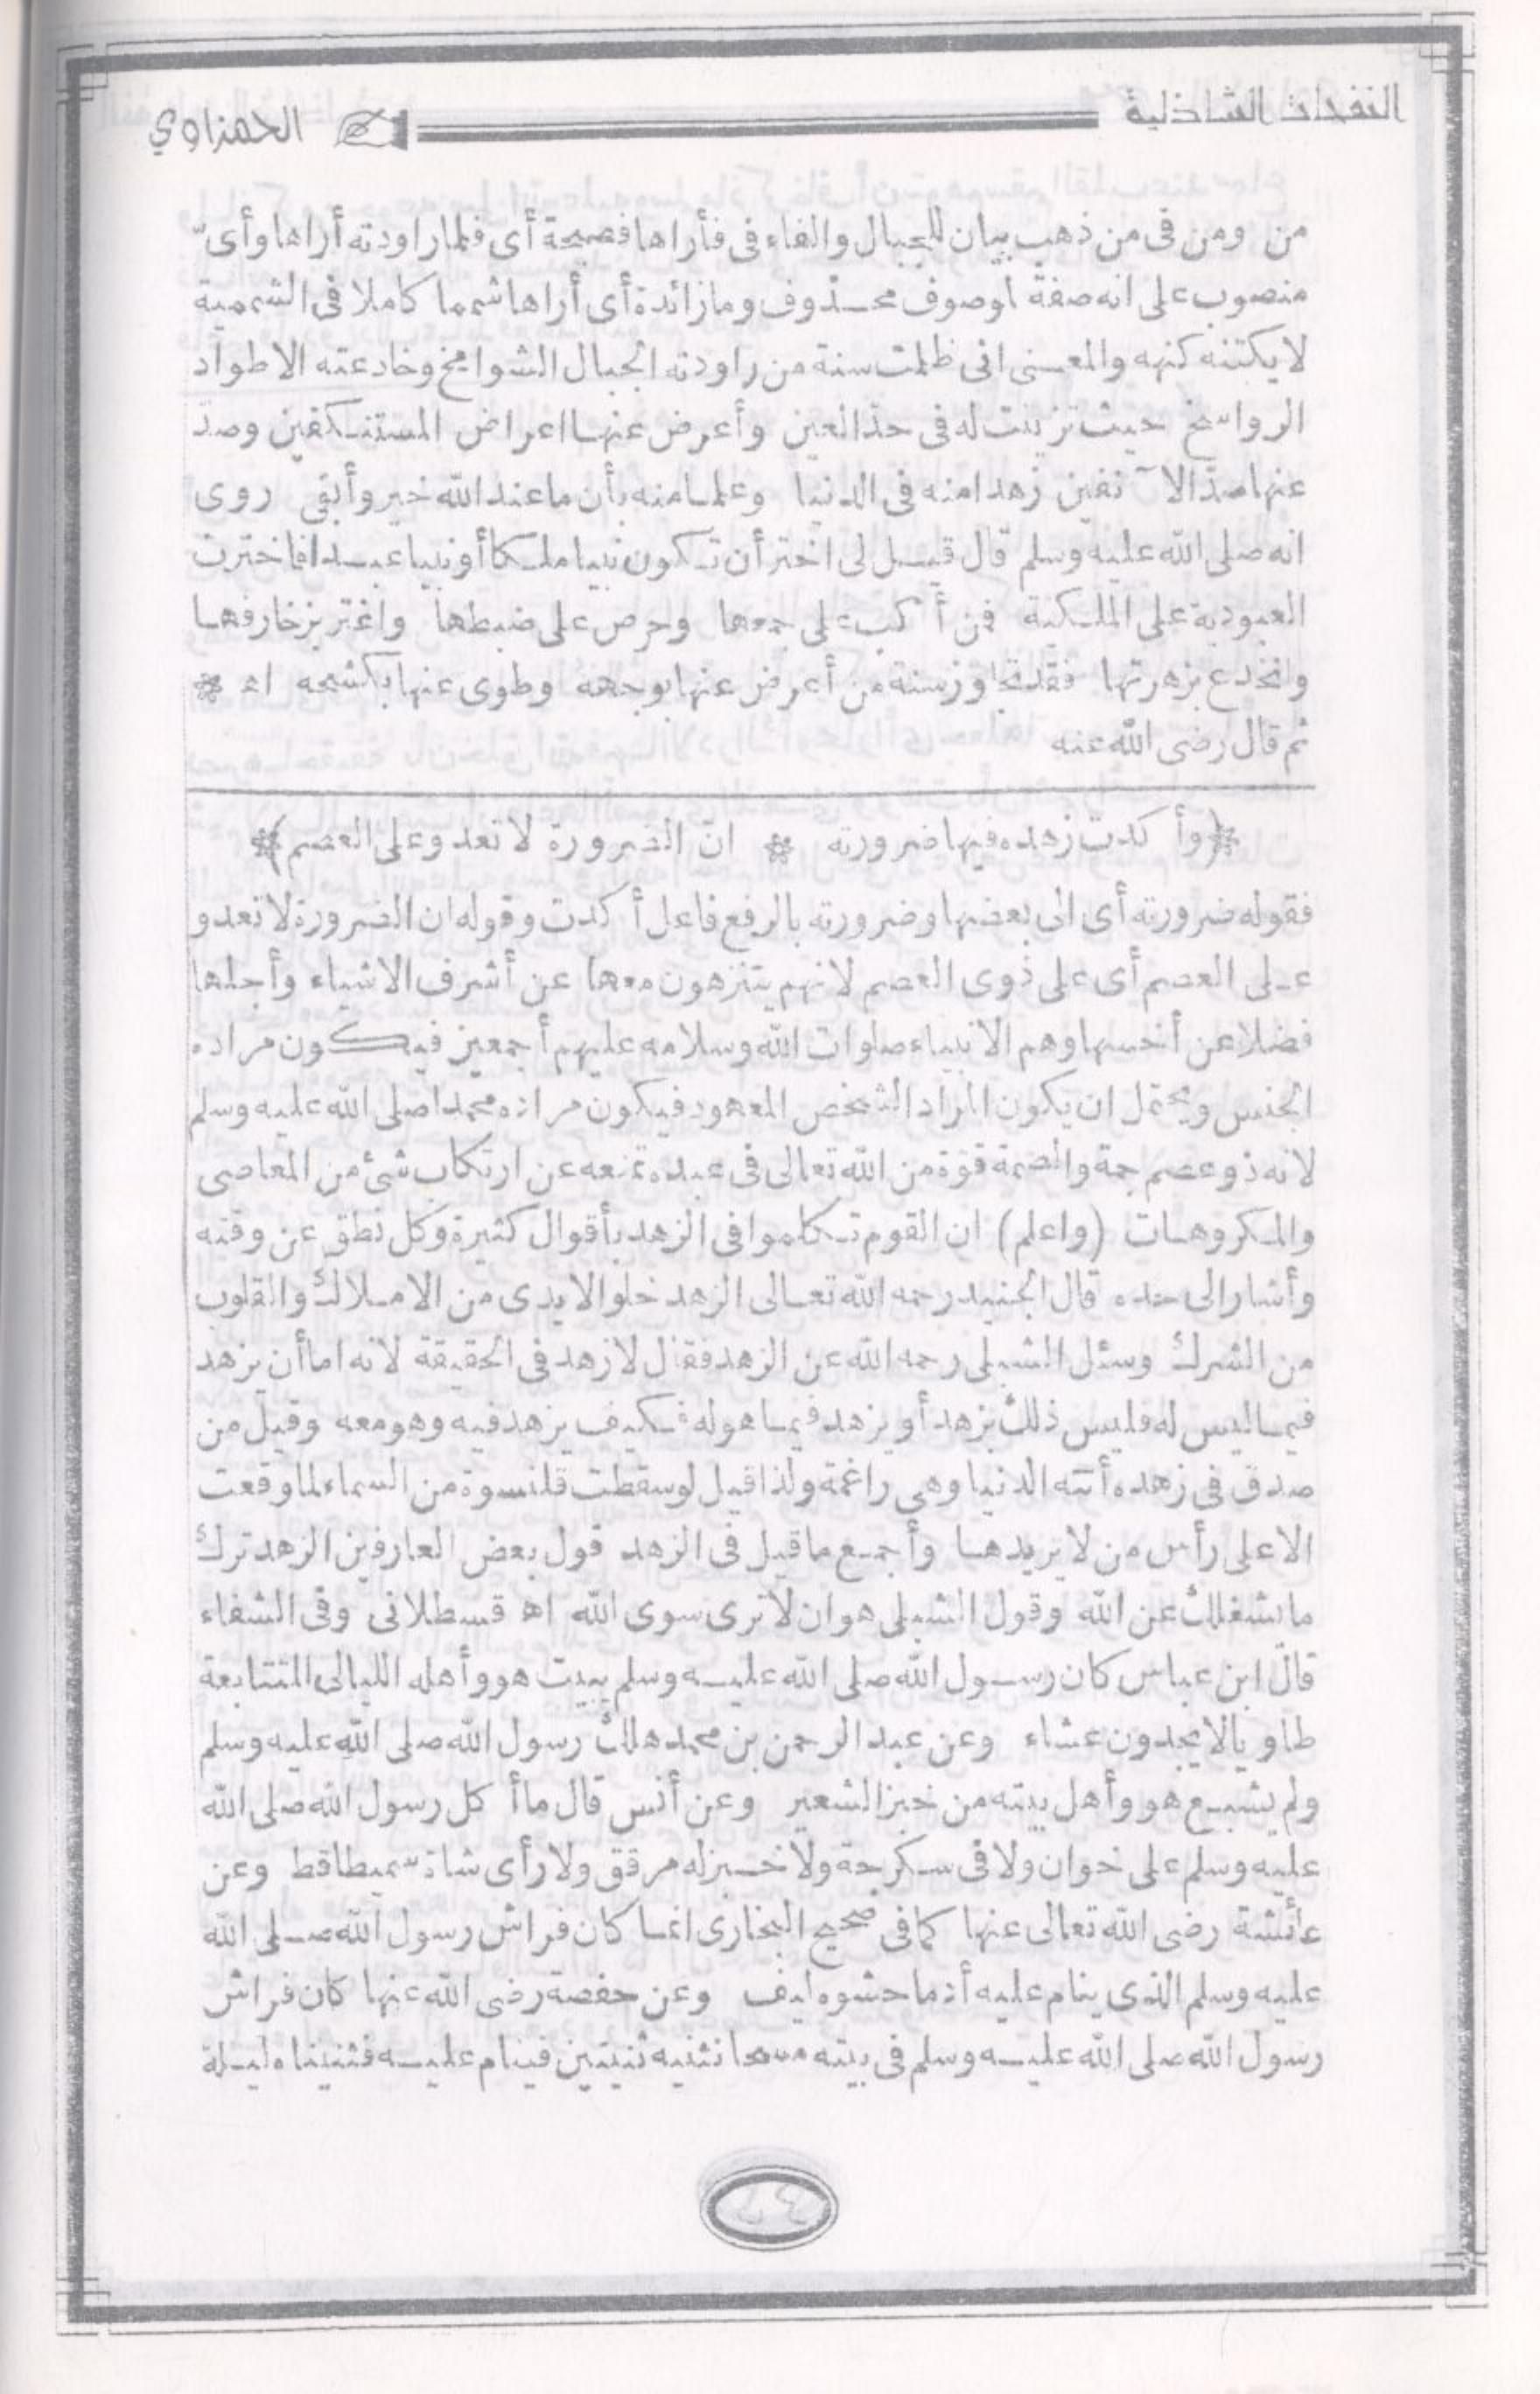 النفحات الشاذلية
الحمزاوي
من ومن فى من ذهب بيان للجبال والفاء فى فأراها فصيحة أى فلما راودته أراها وأىّ
منصوب على انه صفة لموصوف محذوف وما زائدة أى أراها شمما كاملا فى الشممية
لا يكتنه كنهه والمعنى انى ظلمت سنة من راودته الجبال الشوامخ وخادعته الاطواد
الرواسخ حيث تزينت له فى حدّ العين وأعرض عنها اعراض المستنكفين وصدّ
عنها صدّ الآنفين زهدا منه فى الدنيا وعلما منه بأن ما عند الله خير وأبقى روى
انه صلى الله عليه وسلم قال قيل لى اختر أن تكون نبيا ملكا أو نبيا عبدا فاخترت
العبودية على الملكية فمن أكب على جمعها وحرص على ضبطها واغتر بزخارفها
وانخدع بزهرتها فقد تجاوز سنة من أعرض عنها بوجهه وطوى عنها بكشحه اه *
ثم قال رضى الله عنه
﴿وأكدت زهده فيها ضرورته * انّ الضرورة لا تعدو على العصم﴾
فقوله ضرورته أى الى بعضها وضرورته بالرفع فاعل أكدت وقوله ان الضرورة لا تعدو
على العصم أى على ذوى العصم لانهم يتنزهون معها عن أشرف الاشياء وأجلها
فضلا عن أخسها وهم الانبياء صلوات الله وسلامه عليهم أجمعين فيكون مراده
الجنس ويحتمل ان يكون المراد الشخص المعهود فيكون مراده محمدا صلى الله عليه وسلم
لانه ذو عصم جمة والعصمة قوّة من الله تعالى فى عبده تمنعه عن ارتكاب شئ من المعاصى
والمكروهات (واعلم) ان القوم تكلموا فى الزهد بأقوال كثيرة وكل نطق عن وقته
وأشار الى حده قال الجنيد رحمه الله تعالى الزهد خلو الايدى من الاملاك والقلوب
من الشرك وسئل الشبلى رحمه الله عن الزهد فقال لا زهد فى الحقيقة لانه اما أن يزهد
فيما ليس له فليس ذلك بزهد أو يزهد فيما هو له فكيف يزهد فيه وهو معه وقيل من
صدق فى زهده أتته الدنيا وهى راغمة ولذا قيل لو سقطت قلنسوة من السماء لما وقعت
الا على رأس من لا يريدها وأجمع ما قيل فى الزهد قول بعض العارفين الزهد ترك
ما يشغلك عن الله وقول الشبلى هو ان لا ترى سوى الله اه قسطلانى وفى الشفاء
قال ابن عباس كان رسول الله صلى الله عليه وسلم يبيت هو وأهله الليالى المتتابعة
طاويا لا يجدون عشاء وعن عبد الرحمن بن محمد هلك رسول الله صلى الله عليه وسلم
ولم يشبع هو وأهل بيته من خبز الشعير وعن أنس قال ما أكل رسول الله صلى الله
عليه وسلم على خوان ولا فى سكرجة ولا خبز له مرقق ولا رأى شاة سميطا قط وعن
عائشة رضى الله تعالى عنها كما فى صحيح البخارى انما كان فراش رسول الله صلى الله
عليه وسلم الذى ينام عليه أدما حشوه ليف وعن حفصة رضى الله عنها كان فراش
رسول الله صلى الله عليه وسلم فى بيته مسحا نثنيه ثنيتين فينام عليه فثنيناه ليلة